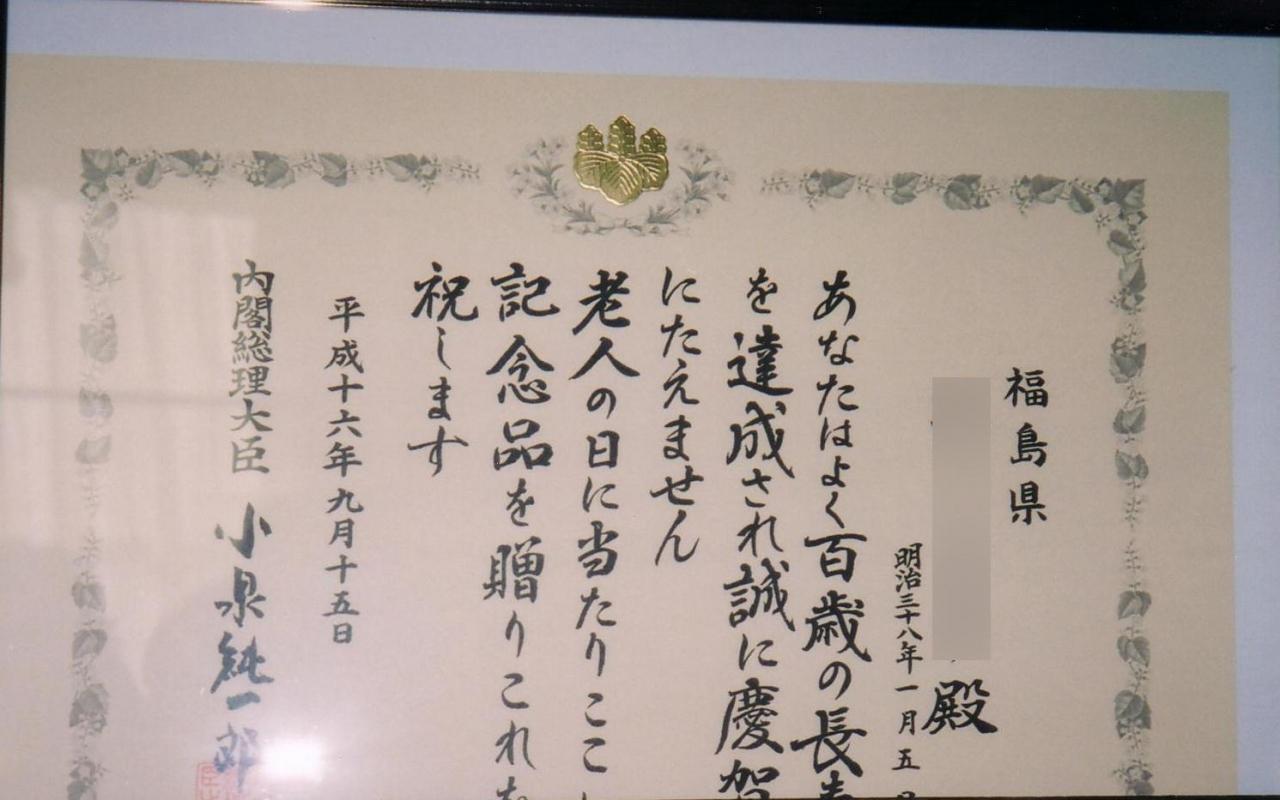 福島県
殿
明治三十八年一月五
あなたはよく百歳の長
を達成され誠に慶賀
にたえません
老人の日に当たりここ
記念品を贈りこれを
祝します
平成十六年九月十五日
内閣総理大臣 小泉純一郎